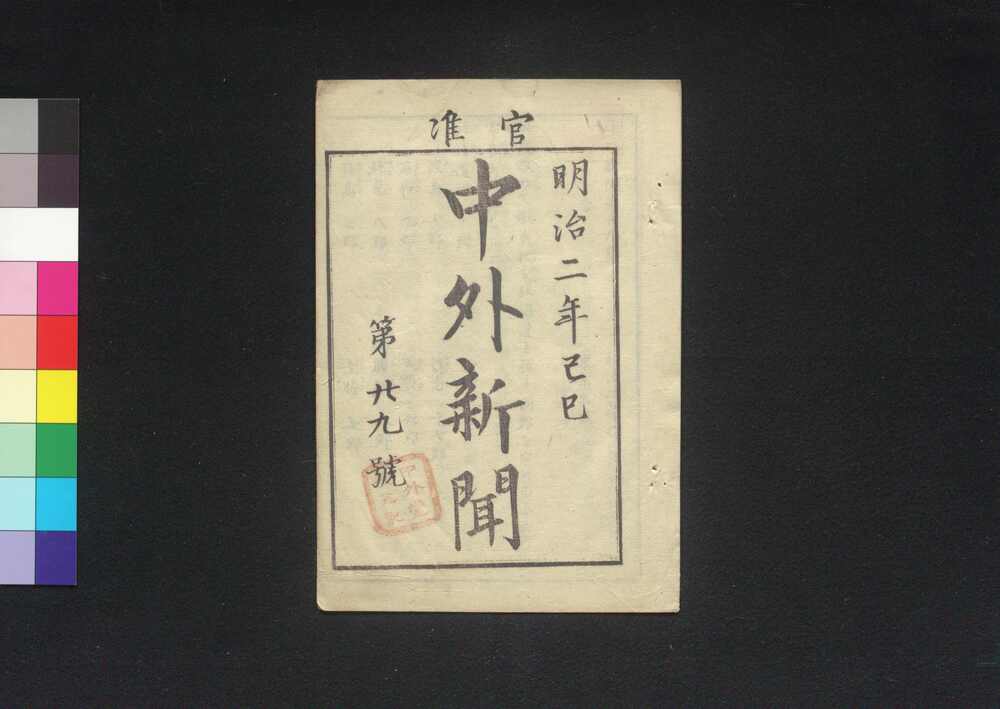 官准
明治二年己巳
中外新聞
第廿九號